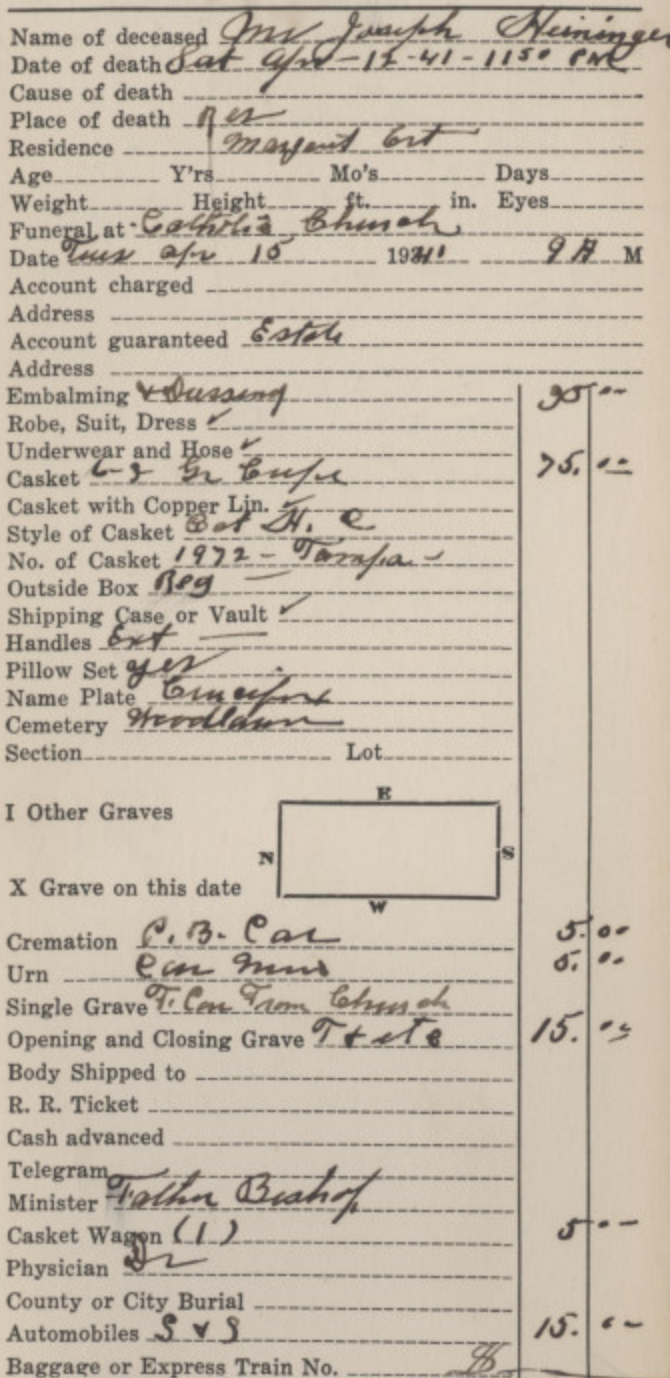 Name of deceased Mr Joseph Heininger
Date of death Sat Apr - 12 - 41 - 11 50 PM
Cause of death
Place of death Res
Residence Margaret Crt
Age Y'rs Mo's Days
Weight Height ft. in. Eyes
Funeral at Catholic Church
Date Tues Apr 15 1941 9 A M
Account charged
Address
Account guaranteed Estate
Address
Embalming & Dressing 35 00
Robe, Suit, Dress ✓
Underwear and Hose ✓
Casket 6-3 Gr Crepe 75. 00
Casket with Copper Lin. ✓
Style of Casket Oct H. C
No. of Casket 1972 - Tampa -
Outside Box Reg
Shipping Case or Vault ✓
Handles Ext
Pillow Set yes
Name Plate Crucifix
Cemetery Woodlawn
Section Lot
E
I Other Graves
N S
X Grave on this date
W
Cremation P. B. Car 5. 00
Urn 5. 00
Single Grave T. Con From Church
Opening and Closing Grave T & 15. 00
Body Shipped to
R. R. Ticket
Cash advanced
Telegram
Minister Father Bishop
Casket Wagon (1) 5 00
Physician Dr
County or City Burial
Automobiles S & S 15. 00
Baggage or Express Train No.